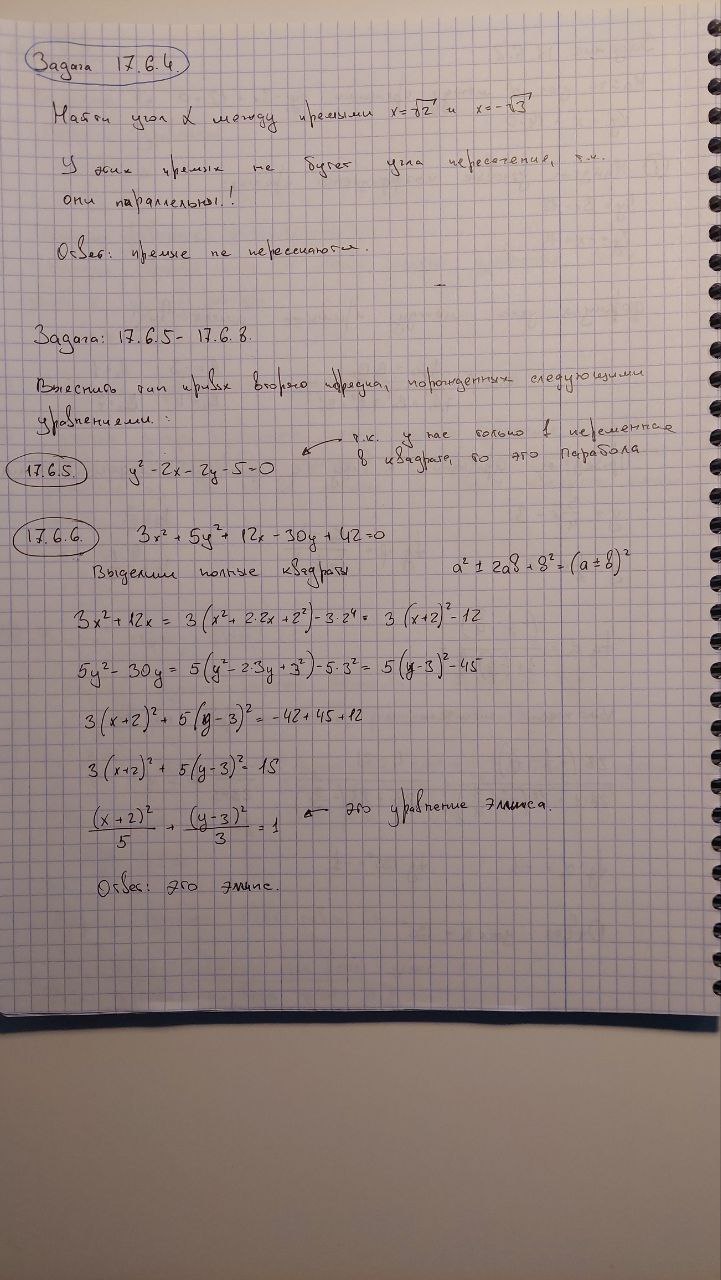 Задача 17.6.4.
Найти угол α между прямыми x=√2 и x=-√3
У этих прямых не будет угла пересечение, т.к.
они параллельны!
Ответ: прямые не пересекаются.
Задача: 17.6.5 - 17.6.8.
Выяснить тип кривых второго порядка, порожденных следующими
уравнениями:
17.6.5. y² - 2x - 2y - 5 = 0
т.к. у нас только 1 переменная
в квадрате, то это Парабола
17.6.6. 3x² + 5y² + 12x - 30y + 42 = 0
Выделим полные квадраты a² ± 2ab + b² = (a ± b)²
3x² + 12x = 3(x² + 2·2x + 2²) - 3·2⁴ = 3(x+2)² - 12
5y² - 30y = 5(y² - 2·3y + 3²) - 5·3² = 5(y-3)² - 45
3(x+2)² + 5(y-3)² = -42 + 45 + 12
3(x+2)² + 5(y-3)² = 15
(x+2)²/5 + (y-3)²/3 = 1 ← это уравнение эллипса.
Ответ: это эллипс.